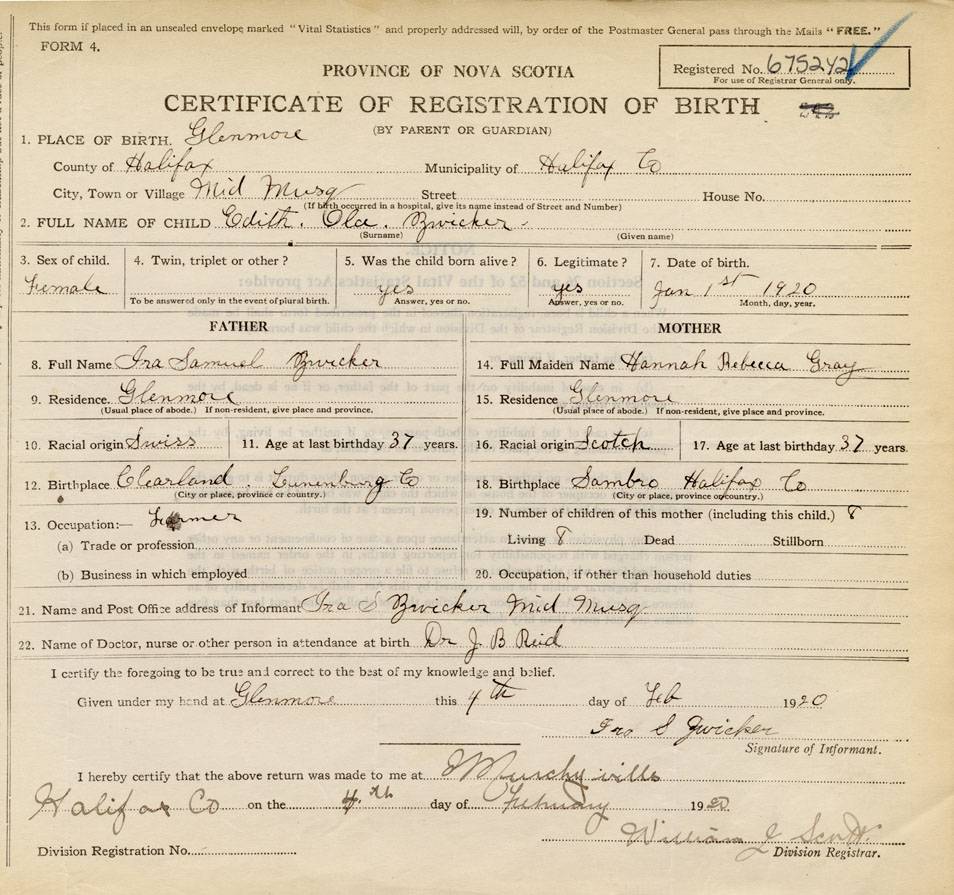 This form if placed in an unsealed envelope marked "Vital Statistics" and properly addressed will, by order of the Postmaster General pass through the Mails "FREE."
FORM 4.
Registered No. 675242
For use of Registrar General only.
PROVINCE OF NOVA SCOTIA
CERTIFICATE OF REGISTRATION OF BIRTH
(BY PARENT OR GUARDIAN)
1. PLACE OF BIRTH. Glenmore
County of Halifax Municipality of Halifax Co
City, Town or Village Mid Musq Street House No.
(If birth occurred in a hospital, give its name instead of Street and Number)
2. FULL NAME OF CHILD Edith. Ola. Zwicker.
(Surname) (Given name)
3. Sex of child. 4. Twin, triplet or other? 5. Was the child born alive? 6. Legitimate? 7. Date of birth.
Female yes yes Jan 1st 1920
To be answered only in the event of plural birth. Answer, yes or no. Answer, yes or no. Month, day, year.
FATHER MOTHER
8. Full Name Ira Samuel Zwicker 14. Full Maiden Name Hannah Rebecca Gray
9. Residence. Glenmore 15. Residence Glenmore
(Usual place of abode.) If non-resident, give place and province. (Usual place of abode.) If non-resident, give place and province.
10. Racial origin Swiss 11. Age at last birthday 37 years. 16. Racial origin Scotch 17. Age at last birthday 37 years.
12. Birthplace Clearland. Lunenburg Co 18. Birthplace Sambro Halifax Co
(City or place, province or country.) (City or place, province or country.)
13. Occupation:— Farmer 19. Number of children of this mother (including this child.) 8
(a) Trade or profession Living 8 Dead Stillborn
(b) Business in which employed 20. Occupation, if other than household duties
21. Name and Post Office address of Informant Ira S Zwicker Mid Musq
22. Name of Doctor, nurse or other person in attendance at birth Dr J. B Reid
I certify the foregoing to be true and correct to the best of my knowledge and belief.
Given under my hand at Glenmore this 4th day of Feb 1920
Ira S Zwicker
Signature of Informant.
I hereby certify that the above return was made to me at Murchyville
Halifax Co on the 4th day of February 1920
William J Scott
Division Registration No. Division Registrar.